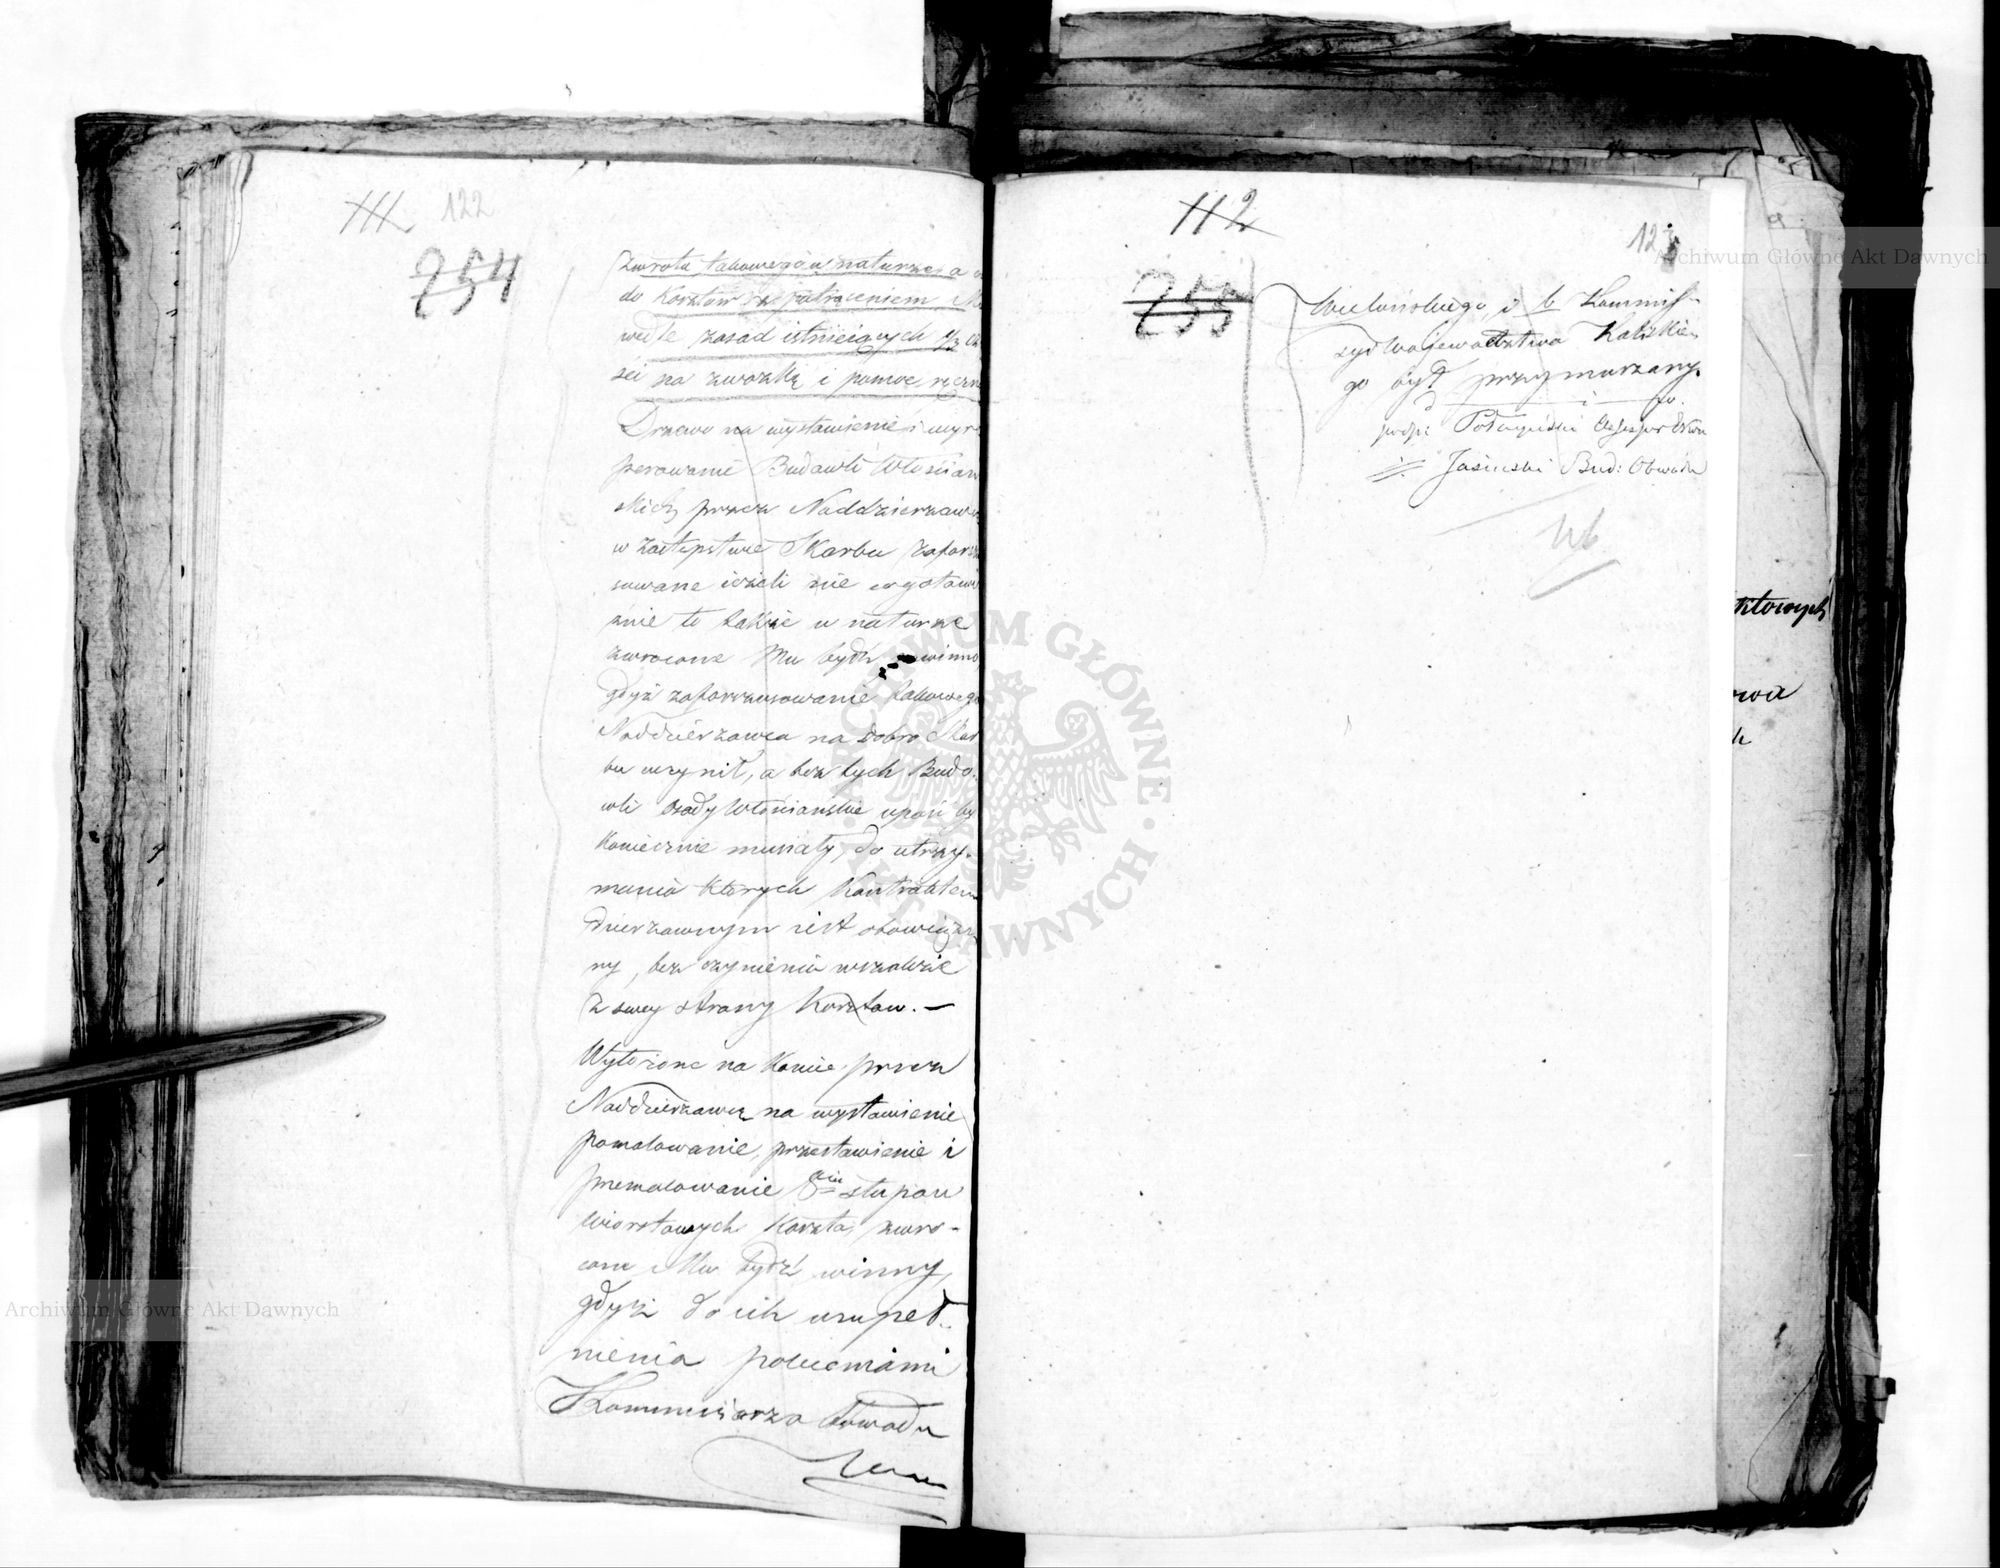 111 122
254
zwrotu takowego w naturze, a
do Kosztów za potrąceniem
wedle zasad istnieiących 1/3
ści na zwózkę i pomoc ręczn
Drzewo na wystawienie i wyre
perowanie Budowli Włościań
skich przez Naddzierżawcę
w zastępstwie Skarbu zafor
sowane ieżeli nie
to także w naturze
zwrócone Mu bydź powinno
gdyż zaforszusowanie takowego
Naddzierżawca na dobro Skar
bu uczynił, a bez tych Budo-
wli Osady Włościańskie upaść by
koniecznie musiały, do utrzy-
mania których Kontraktem
dzierżawnym iest obowiąza
ny, bez czynienia wszakże
z swey strony Kosztów. —
Wyłożone na koniec przez
Naddzierżawcę na wystawienie
pomalowanie, przestawienie i
premalowanie słupów
Wiorstowych Koszta, zwró-
cone Mu bydź winny,
gdyż do ich uzupeł-
nienia poleceniami
Kommissarza Obwodu
112
123
255
Wieluńskiego, i b. Kommis-
syi Województwa Kaliskie-
go był przymuszany.
podpi: Assessor Ekon
Jasiński Bud: Obwodu
ktowych
Archiwum Główne Akt Dawnych
ARCHIWUM GŁÓWNE AKT DAWNYCH
Archiwum Główne Akt Dawnych